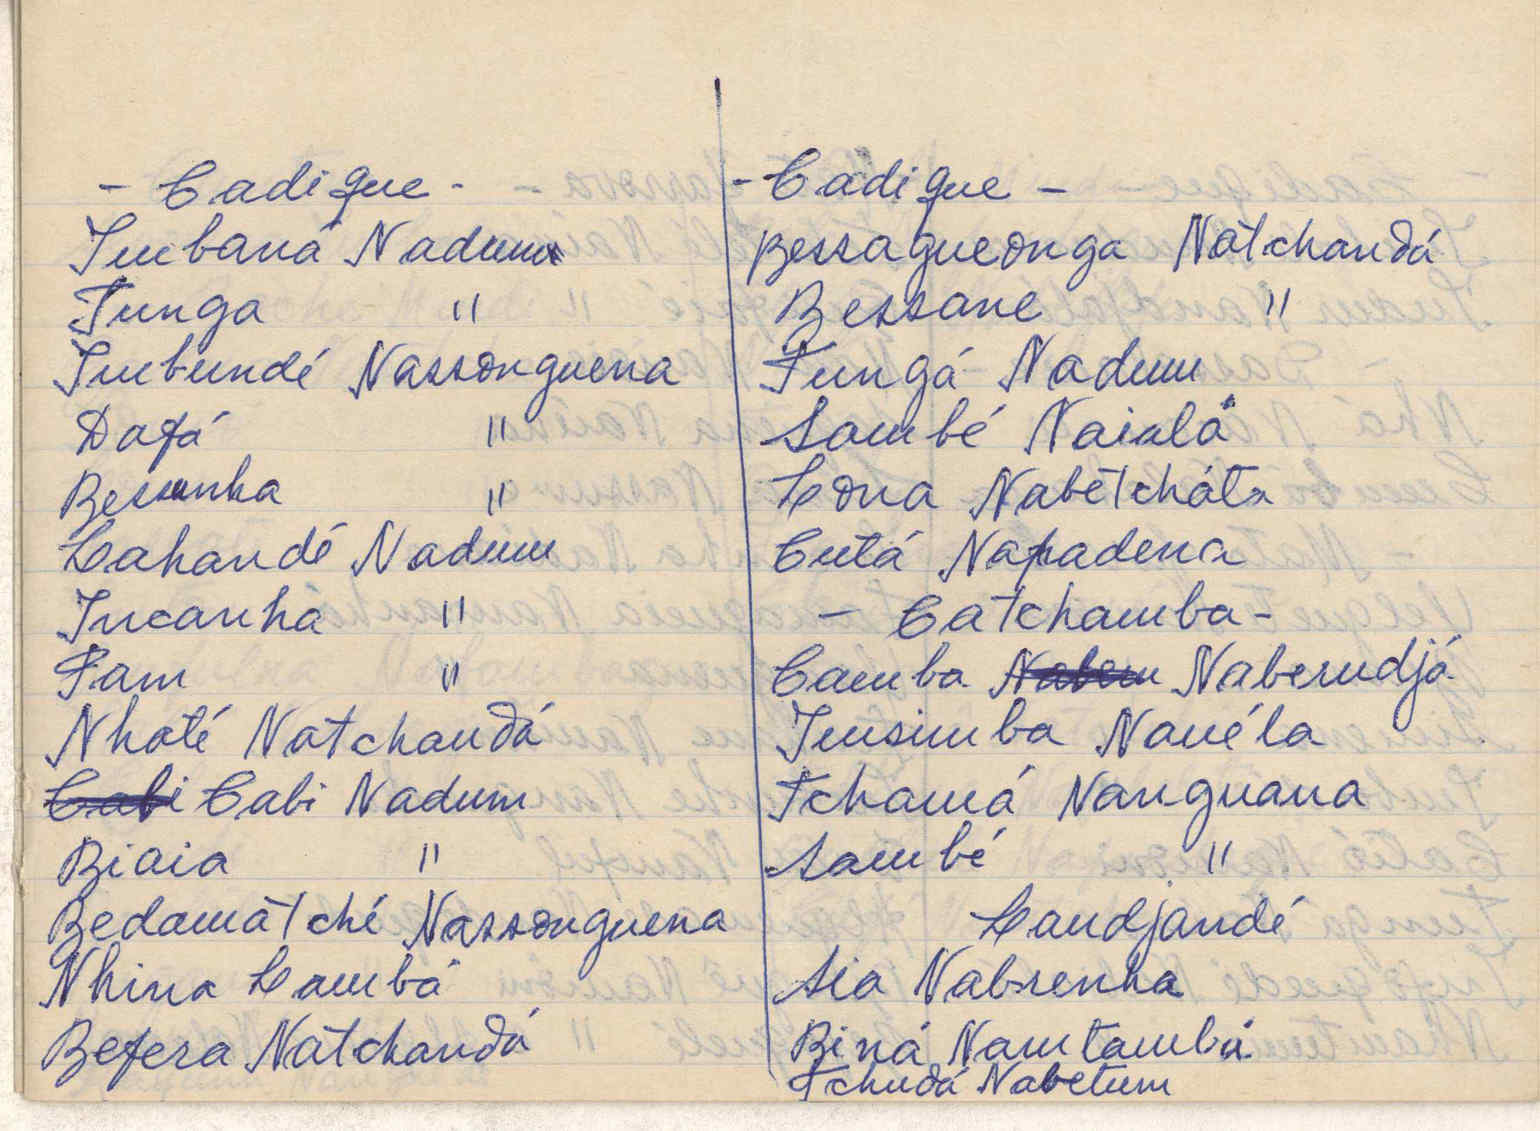 - Cadique -
Imbaná Nadum
Tunga "
Imbundé Nassonguena
Dafá "
Bessunha "
Cahandé Nadum
Incanha "
Fam "
Nhaté Natchandá
Cabi Cabi Nadum
Biaia "
Bedamatché Nassonguena
Nhina Cambá
Befera Natchandá
- Cadique -
Bessagueonga Natchandá
Bessane "
Tungá Nadum
Sambé Naialá
Cona Nabetcháta
Cutá Napadena
- Catchamba -
Camba Nabem Naberudjá
Imsimba Nauéla
Tchamá Nanguana
Sambé "
Candjandé
Sia Nabsenha
Biná Namtambá
Tchudá Nabetum